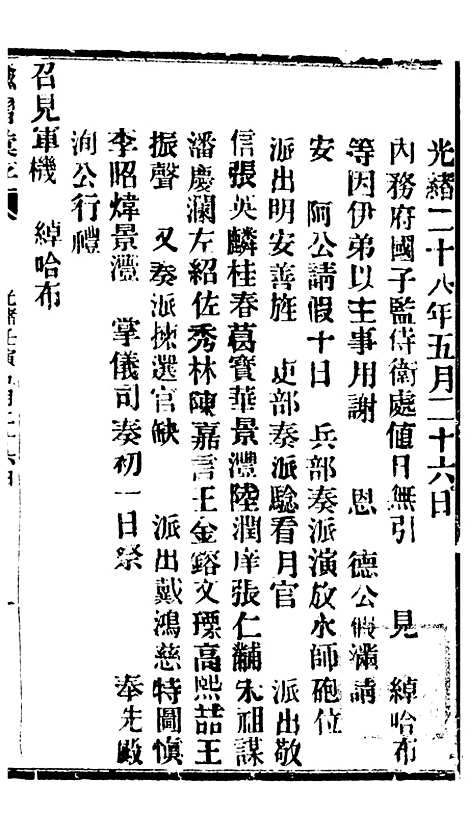 光緒二十八年五月二十六日
內務府國子監侍衛處値日無引　見　綽哈布
等因伊弟以主事用謝　恩　德公假滿請
安　阿公請假十日　兵部奏派演放水師砲位
派出明安善旌　吏部奏派驗看月官　派出敬
信張英麟桂春葛寶華景灃陸潤庠張仁黼朱祖謀
潘慶瀾左紹佐秀林陳嘉言王金鎔文瑮高熙喆王
振聲　又奏派揀選官缺　派出戴鴻慈特圖愼
李昭煒景灃　掌儀司奏初一日祭　奉先殿
洵公行禮
召見軍機　綽哈布